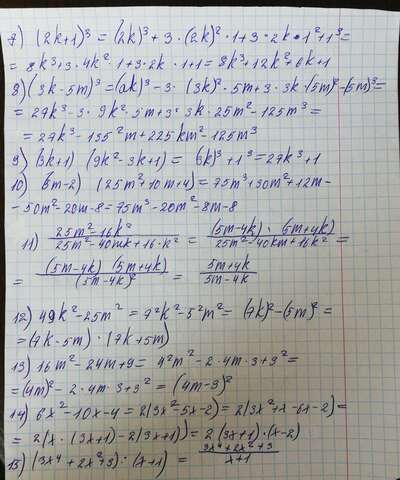 7) (2k+1)³ = (2k)³ + 3·(2k)²·1+3·2k·1²+1³=
= 8k³+3·4k²·1+3·2k·1+1= 8k³+12k²+6k+1
8) (3k-5m)³ = (3k)³-3·(3k)²·5m+3·3k·(5m)²-(5m)³=
= 27k³-3·9k²·5m+3·3k·25m²-125m³=
= 27k³-135²m+225km²-125m³
9) (3k+1) (9k²-3k+1) = (3k)³+1³=27k³+1
10) (3m-2) (25m²+10m+4)=75m³+30m²+12m-
-50m²-20m-8=75m³-20m²-8m-8
11) (25m²-16k²)/(25m²-40mk+16k²) = ((5m-4k)·(5m+4k))/(25m²-40km+16k²) =
= ((5m-4k)(5m+4k))/((5m-4k)²) = (5m+4k)/(5m-4k)
12) 49k²-25m² = 7²k²-5²m² = (7k)²-(5m)² =
=(7k-5m)·(7k+5m)
13) 16m²-24m+9= 4²m²-2·4m·3+3²=
=(4m)²-2·4m·3+3² = (4m-3)²
14) 6x²-10x-4=2(3x²-5x-2)=2(3x²+x-6x-2)=
= 2(x·(3x+1)-2(3x+1))=2(3x+1)·(x-2)
15) (3x⁴+2x²+3):(x+1) = (3x⁴+2x²+3)/(x+1)